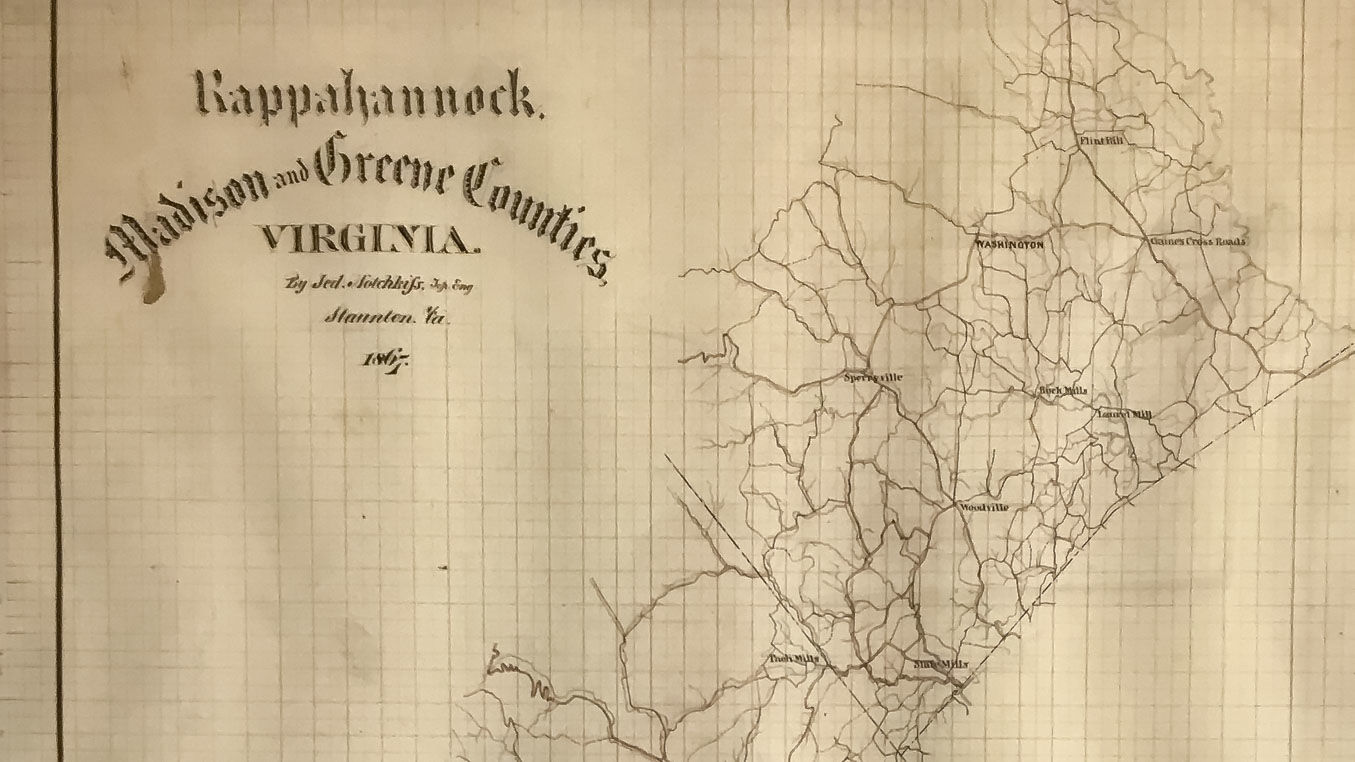 Rappahannock,
Madison and Greene Counties,
VIRGINIA.
By Jed. Hotchkiss, Top. Eng
Staunton. Va.
1867.
Flint Hill
WASHINGTON
Gaines Cross Roads
Sperryville
Rock Mills
Laurel Mill
Woodville
Mills
Slate Mills